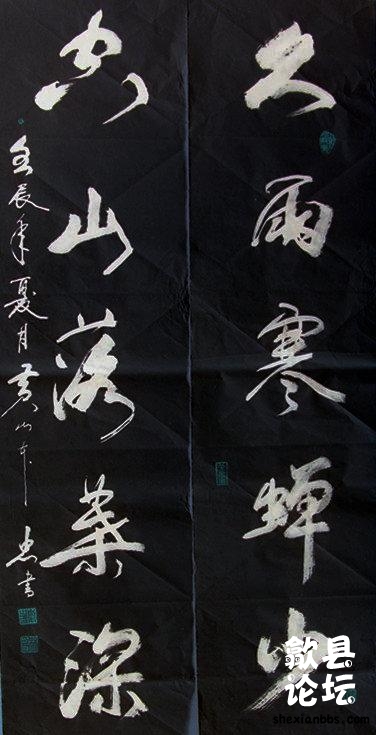 久雨寒蝉少
空山落葉深
壬辰年夏月黄山忠書
歙县
论坛
shexianbbs.com